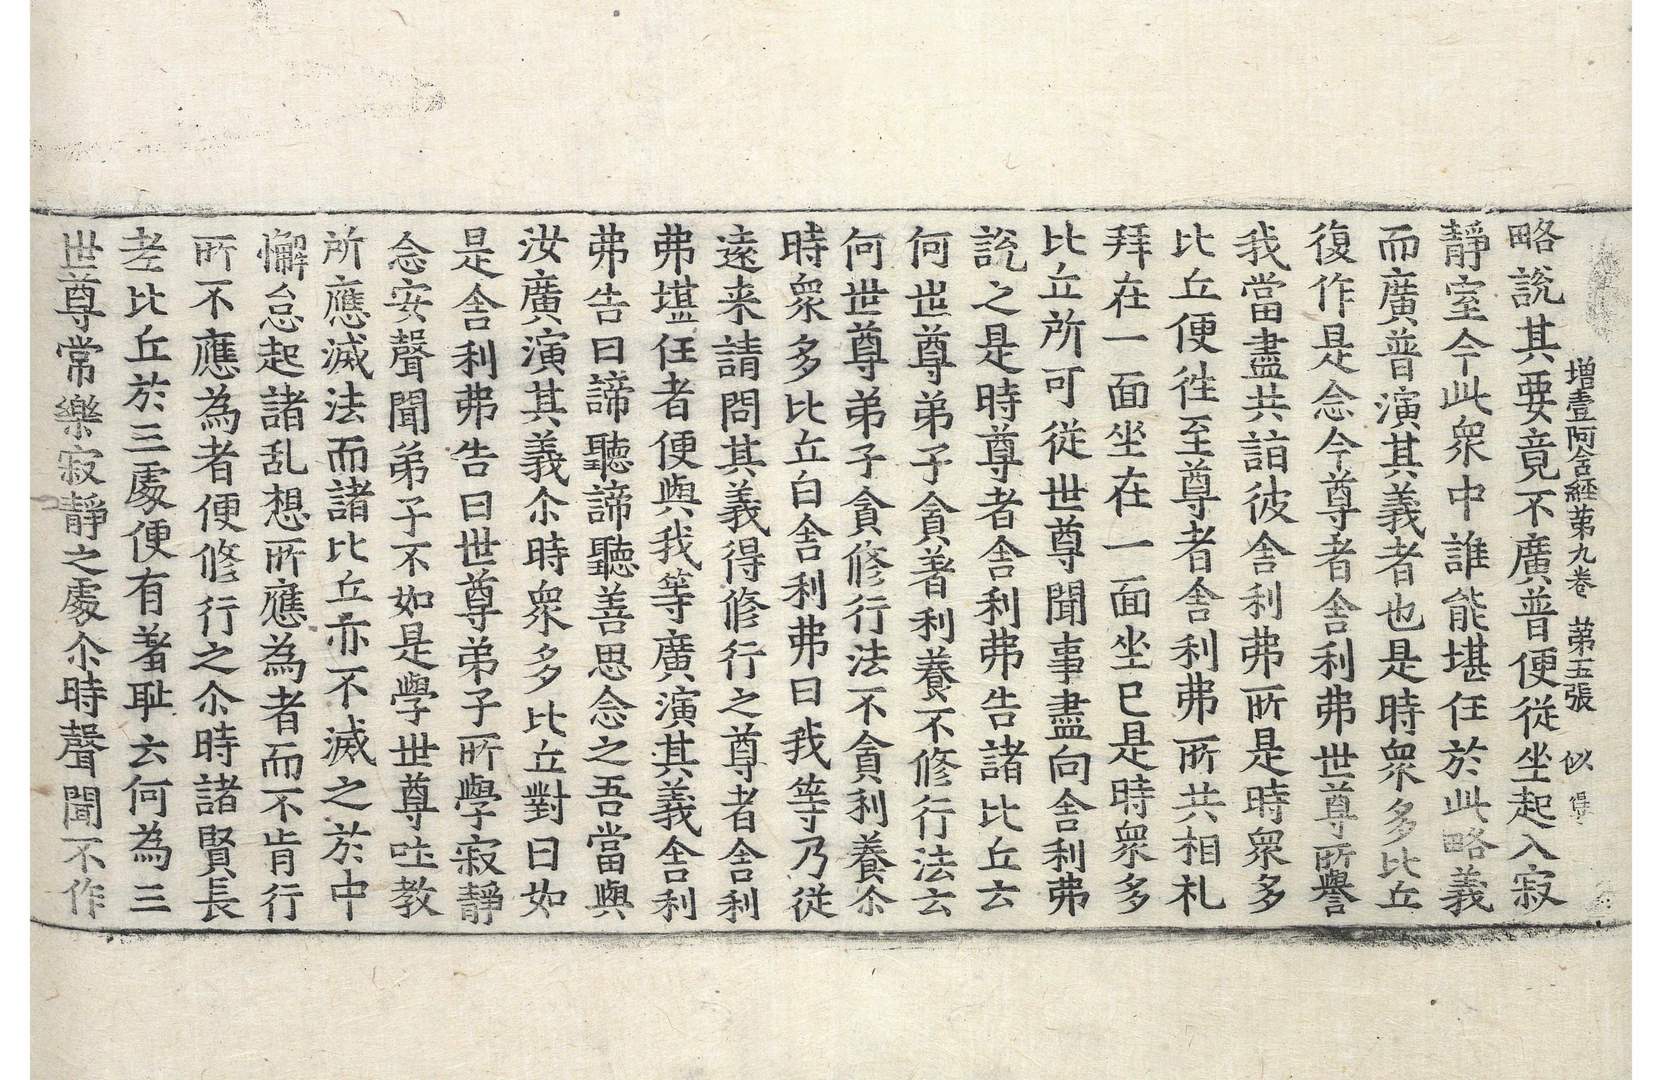 增壹阿含経苐九卷 苐五張 似
略説其要竟不廣普便從坐起入寂
静室今此衆中誰能堪任於此略義
而廣普演其義者也是時衆多比丘
復作是念今尊者舎利弗世尊所譽
我當盡共詣彼舎利弗所是時衆多
比丘便徃至尊者舎利弗所共相礼
拜在一面坐在一面坐已是時衆多
比丘所可從世尊聞事盡向舎利弗
説之是時尊者舎利弗告諸比丘云
何世尊弟子貪著利養不修行法云
何世尊弟子貪修行法不貪利養尒
時衆多比丘白舎利弗曰我等乃從
遠来請問其義得修行之尊者舎利
弗堪任者便與我等廣演其義舎利
弗告曰諦聽諦聽善思念之吾當與
汝廣演其義尒時衆多比丘對曰如
是舎利弗告曰世尊弟子所學寂静
念安聲聞弟子不如是學世尊吐教
所應滅法而諸比丘亦不滅之於中
懈怠起諸乱想所應為者而不肯行
所不應為者便修行之尒時諸賢長
老比丘於三處便有羞耻云何為三
世尊常樂寂静之處尒時聲聞不作